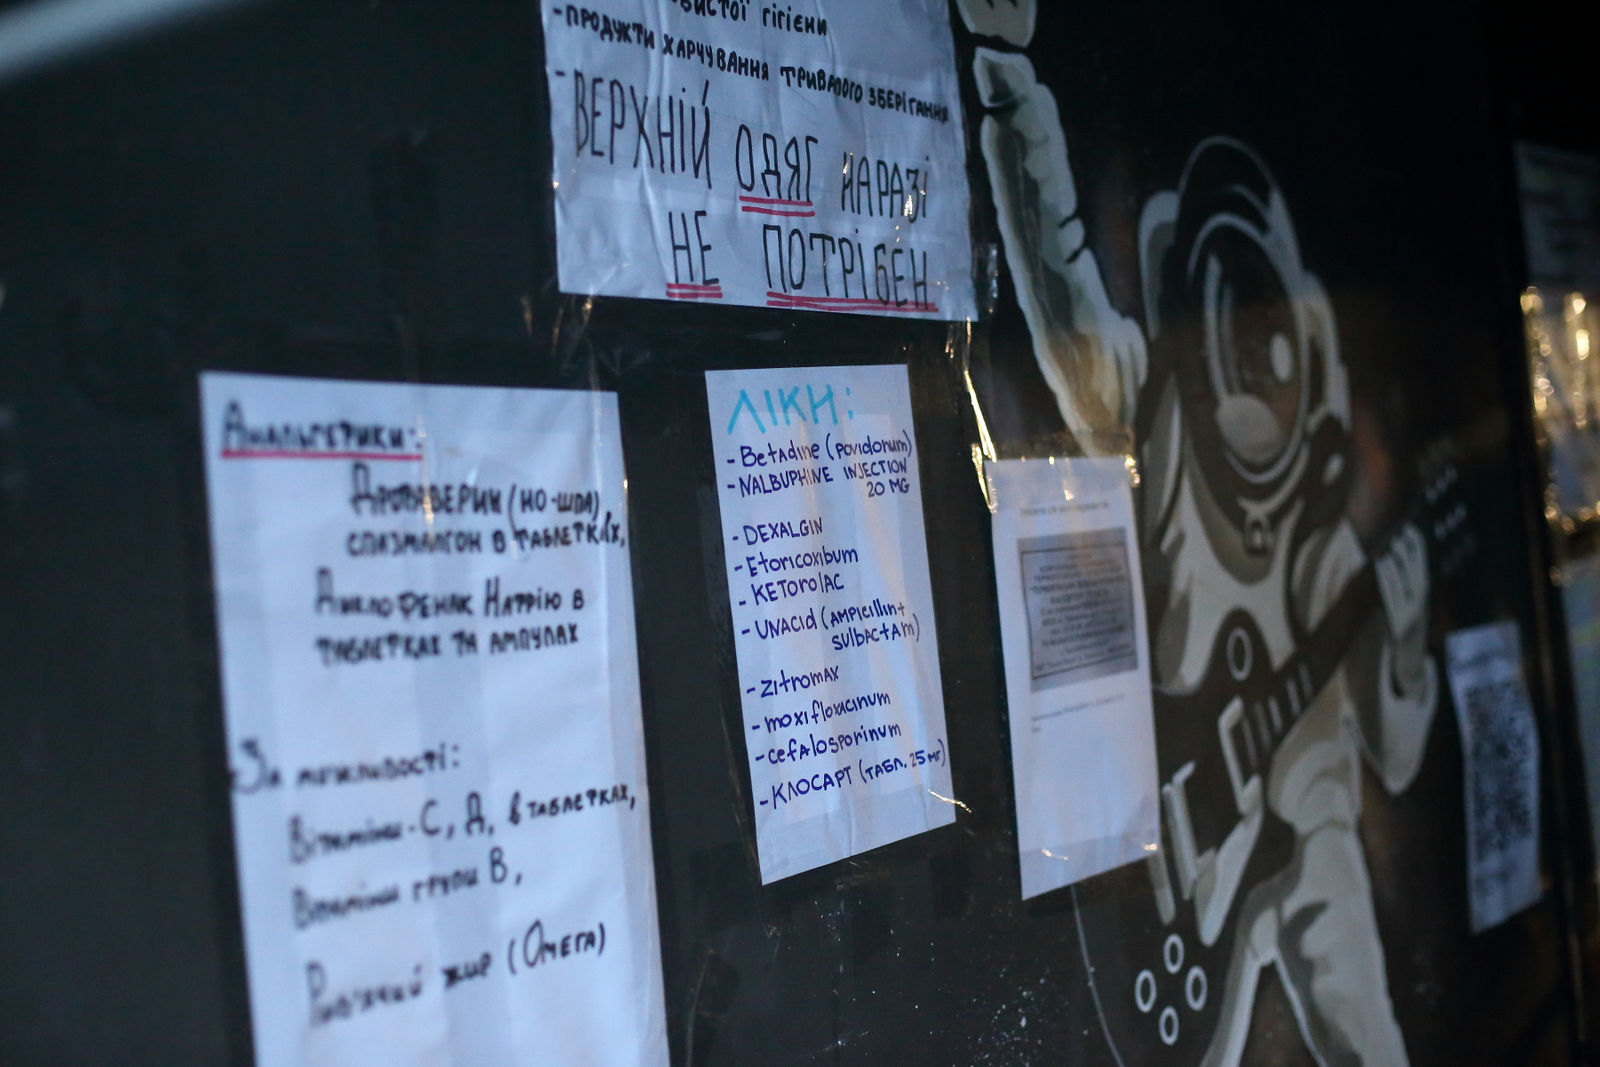 гігієни
-ПРОДУКТИ ХАРЧУВАННЯ ТРИВАЛОГО ЗБЕРІГАННЯ
-ВЕРХНІЙ ОДЯГ НАРАЗІ
НЕ ПОТРІБЕН
Анальгетики:
Дротаверин (НО-ШПА),
СПАЗМАЛГОН В ТАБЛЕТКАХ,
Диклофенак Натрію в
ТАБЛЕТКАХ ТА АМПУЛАХ
За можливості:
Вітаміни-С, Д, в ТАБЛЕТКАХ,
Вітаміни групи В,
Риб'ячий жир (Омега)
ЛІКИ:
-Betadine (povidonum)
-NALBUPHINE INJECTION
20 MG
-DEXALGIN
-Etoricoxibum
-KETorolAC
-UNACid (AMPICillin+
sulbactam)
-zitromax
-moxifloxacinum
-cefalosporinum
-КЛОСАРТ (ТАБЛ. 25 мг)